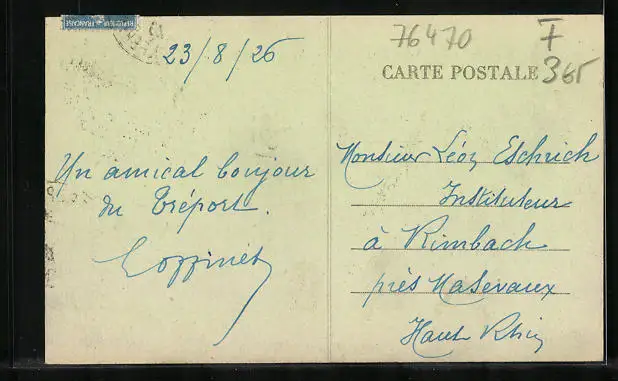 REPUBLIQUE FRANCAISE
23/8/26
76470
F
365
CARTE POSTALE
Un amical bonjour
du Tréport.
Monsieur Léon Eschrich
Instituteur
à Rimbach
près Masevaux
Haut Rhin